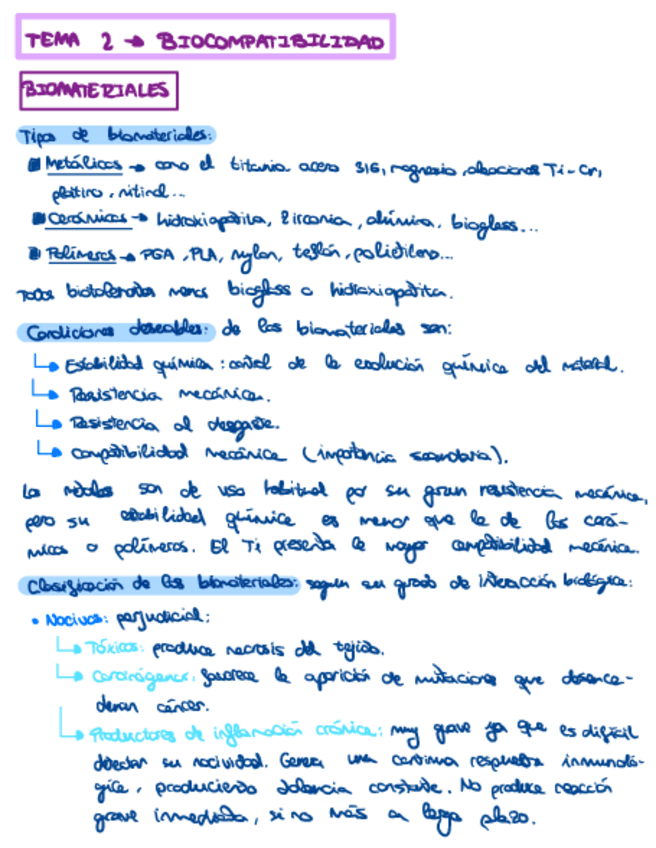 TEMA 2 → BIOCOMPATIBILIDAD
BIOMATERIALES
Tipos de biomateriales:
Metálicos → como el titanio, acero 316, magnesio, aleaciones Ti-Cr,
platino, nitinol...
Cerámicos → hidroxiapatita, zirconia, alúmina, bioglass...
Polímeros → PGA, PLA, nylon, teflón, polietileno...
Todos biotolerados menos bioglass o hidroxiapatita.
Condiciones deseables: de los biomateriales son:
↳ Estabilidad química: control de la evolución química del material.
↳ Resistencia mecánica.
↳ Resistencia al desgaste.
↳ compatibilidad mecánica (importancia secundaria).
Los metales son de uso habitual por su gran resistencia mecánica,
pero su estabilidad química es menor que la de los cerá-
micos o polímeros. El Ti presenta la mayor compatibilidad mecánica.
Clasificación de los biomateriales: según su grado de interacción biológica:
• Nocivos: perjudicial:
↳ Tóxicos: produce necrosis del tejido.
↳ Carcinógenos: favorece la aparición de mutaciones que desenca-
denan cáncer.
↳ Productores de inflamación crónica: muy grave ya que es difícil
detectar su nocividad. Genera una continua respuesta inmunoló-
gica, produciendo dolencia constante. No produce reacción
grave inmediata, si no más a largo plazo.